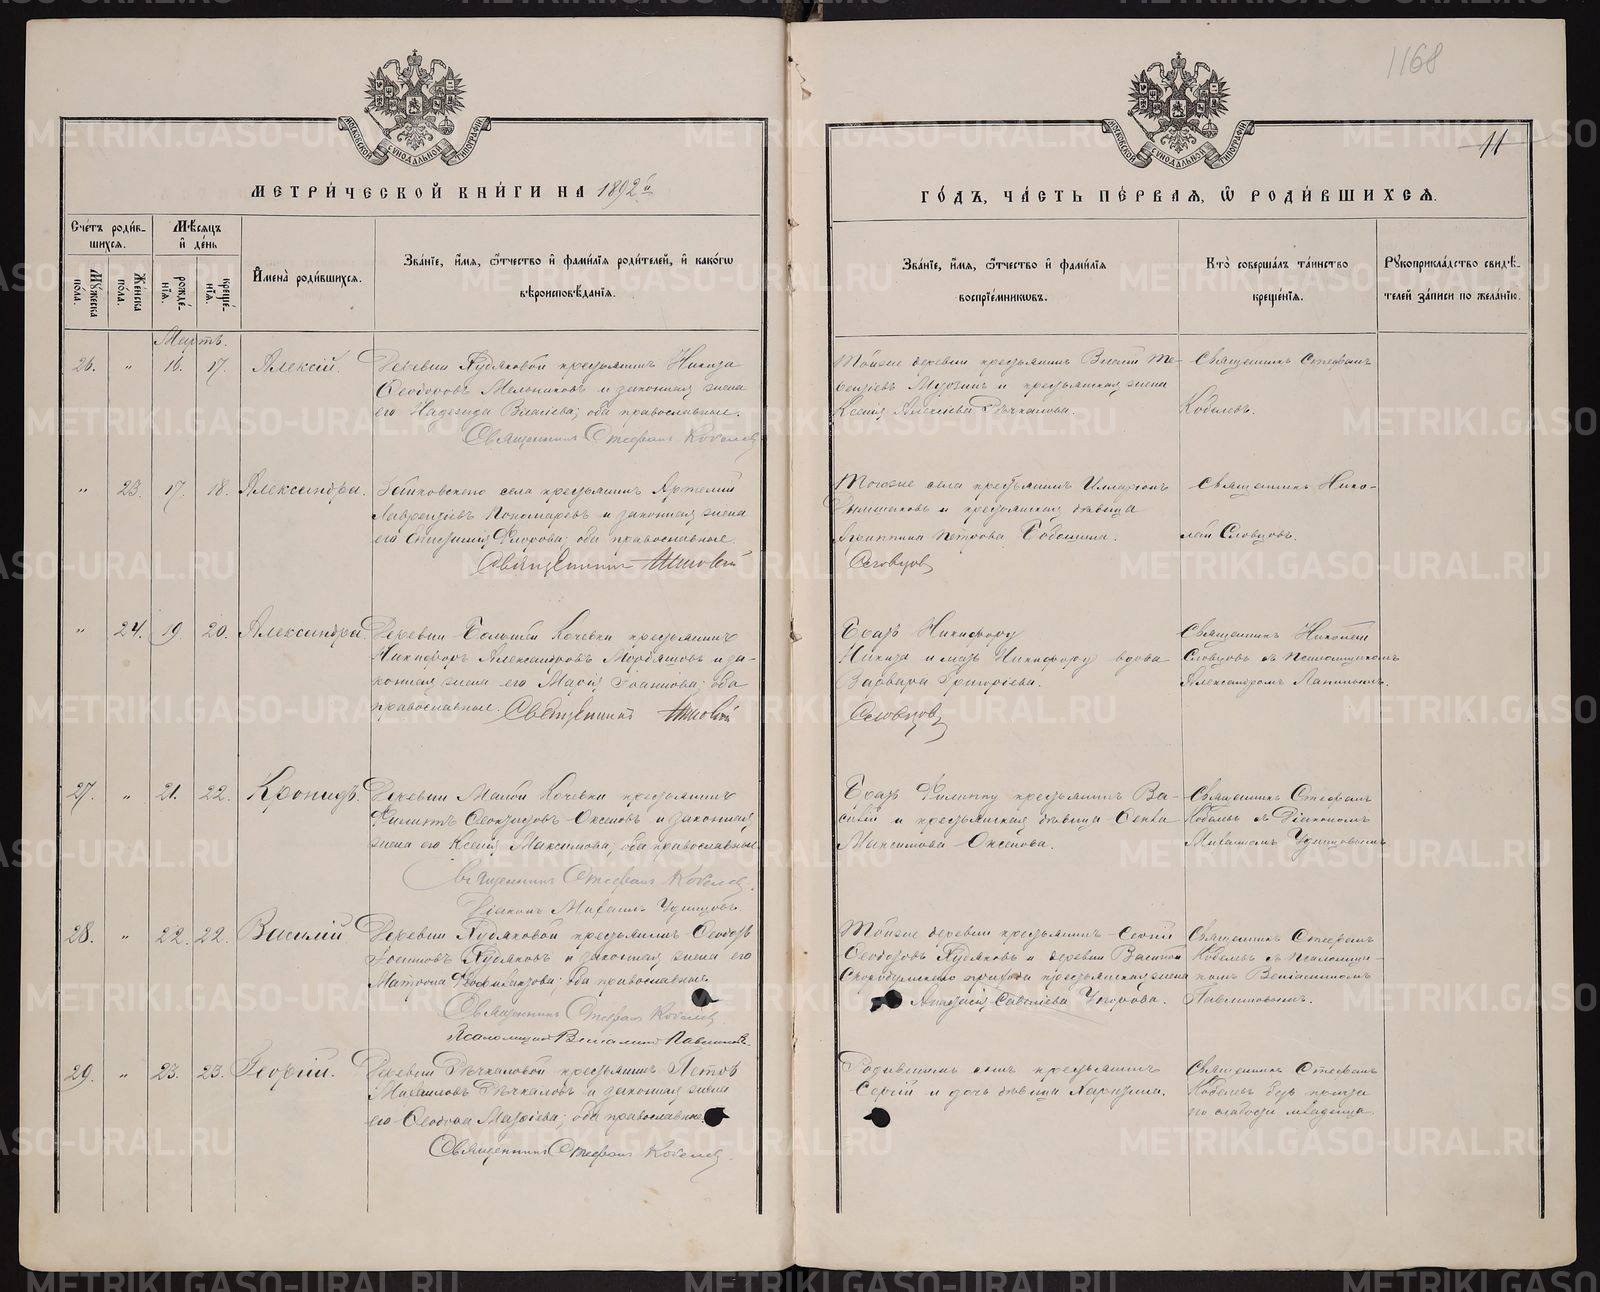 1168
11
МЕТРИЧЕСКОЙ КНИГИ НА 1892й
ГОДЪ, ЧАСТЬ ПЕРВАЯ, Ѡ РОДИВШИХСЯ.
Счетъ родив-
шихся.
Мѣсяцъ
и день
Мужеска
пола.
Женска
пола.
рожде-
нія.
креще-
нія.
Имена родившихся.
Званіе, имя, отчество и фамилія родителей, и какогѡ
вѣроисповѣданія.
Званіе, имя, отчество и фамилія
воспріемникѡвъ.
Кто совершалъ таинство
крещенія.
Рукоприкладство свидѣ-
телей записи по желанію.
Мартъ.
26. " 16. 17. Алексій. Деревни Худяковой крестьянинъ Никита
Ѳеодоровъ Мельниковъ и законная жена
его Надежда Власіева; оба православные.
Священникъ Стефанъ Кобелевъ
Тойже деревни крестьянинъ
и крестьянская жена
Ксенія Алексіева Рѣчкалова.
Священникъ Стефанъ
Кобелевъ.
" 23. 17. 18. Александра. села крестьянинъ Артемій
Лаврентіевъ Пономаревъ и законная жена
его Флорова; оба православные.
Священникъ
Тогоже села крестьянинъ Илларіонъ
и крестьянская дѣвица
Агриппина Петрова
Словцовъ
Священникъ Нико-
лай Словцовъ.
" 24. 19. 20. Александра. Деревни Большой Кочевки крестьянинъ
Никифоръ Александровъ и за-
конная жена его Марія Іоаннова; оба
православные. Священникъ
Братъ Никифору
Никита и мать Никифору вдова
Варвара Григоріева.
Словцовъ
Священникъ Николай
Словцовъ съ псаломщикомъ
Александромъ Лапинымъ.
27. " 21. 22. Кронидъ. Деревни Малой Кочевки крестьянинъ
Филиппъ Ѳеоктистовъ Оксеновъ и законная
жена его Ксенія Максимова; оба православные.
Священникъ Стефанъ Кобелевъ.
Діаконъ Михаилъ Удинцовъ.
Братъ Филиппу крестьянинъ Ва-
силій и крестьянская дѣвица Ѳекла
Максимова Оксенова.
Священникъ Стефанъ
Кобелевъ съ Діакономъ
Михаиломъ Удинцовымъ.
28. " 22. 22. Василій Деревни Худяковой крестьянинъ Ѳеодотъ
Іосифовъ Худяковъ и законная жена его
Матрона Ѳеофилактова; оба православные.
Священникъ Стефанъ Кобелевъ.
Псаломщикъ Веніаминъ Павлиновъ.
Тойже деревни крестьянинъ
Ѳеодоровъ Худяковъ и деревни
прихода крестьянская жена
Анастасія Савватіева
Священникъ Стефанъ
Кобелевъ съ псаломщи-
комъ Веніаминомъ
Павлиновымъ.
29. " 23. 23. Георгій. Деревни Рѣчкаловой крестьянинъ Петръ
Михаиловъ Рѣчкаловъ и законная жена
его Ѳеодора Матѳіева; оба православные.
Священникъ Стефанъ Кобелевъ.
Родившимъ сынъ крестьянинъ
Сергій и дочь дѣвица Харитина.
Священникъ Стефанъ
Кобелевъ безъ причта
по слабости младенца.